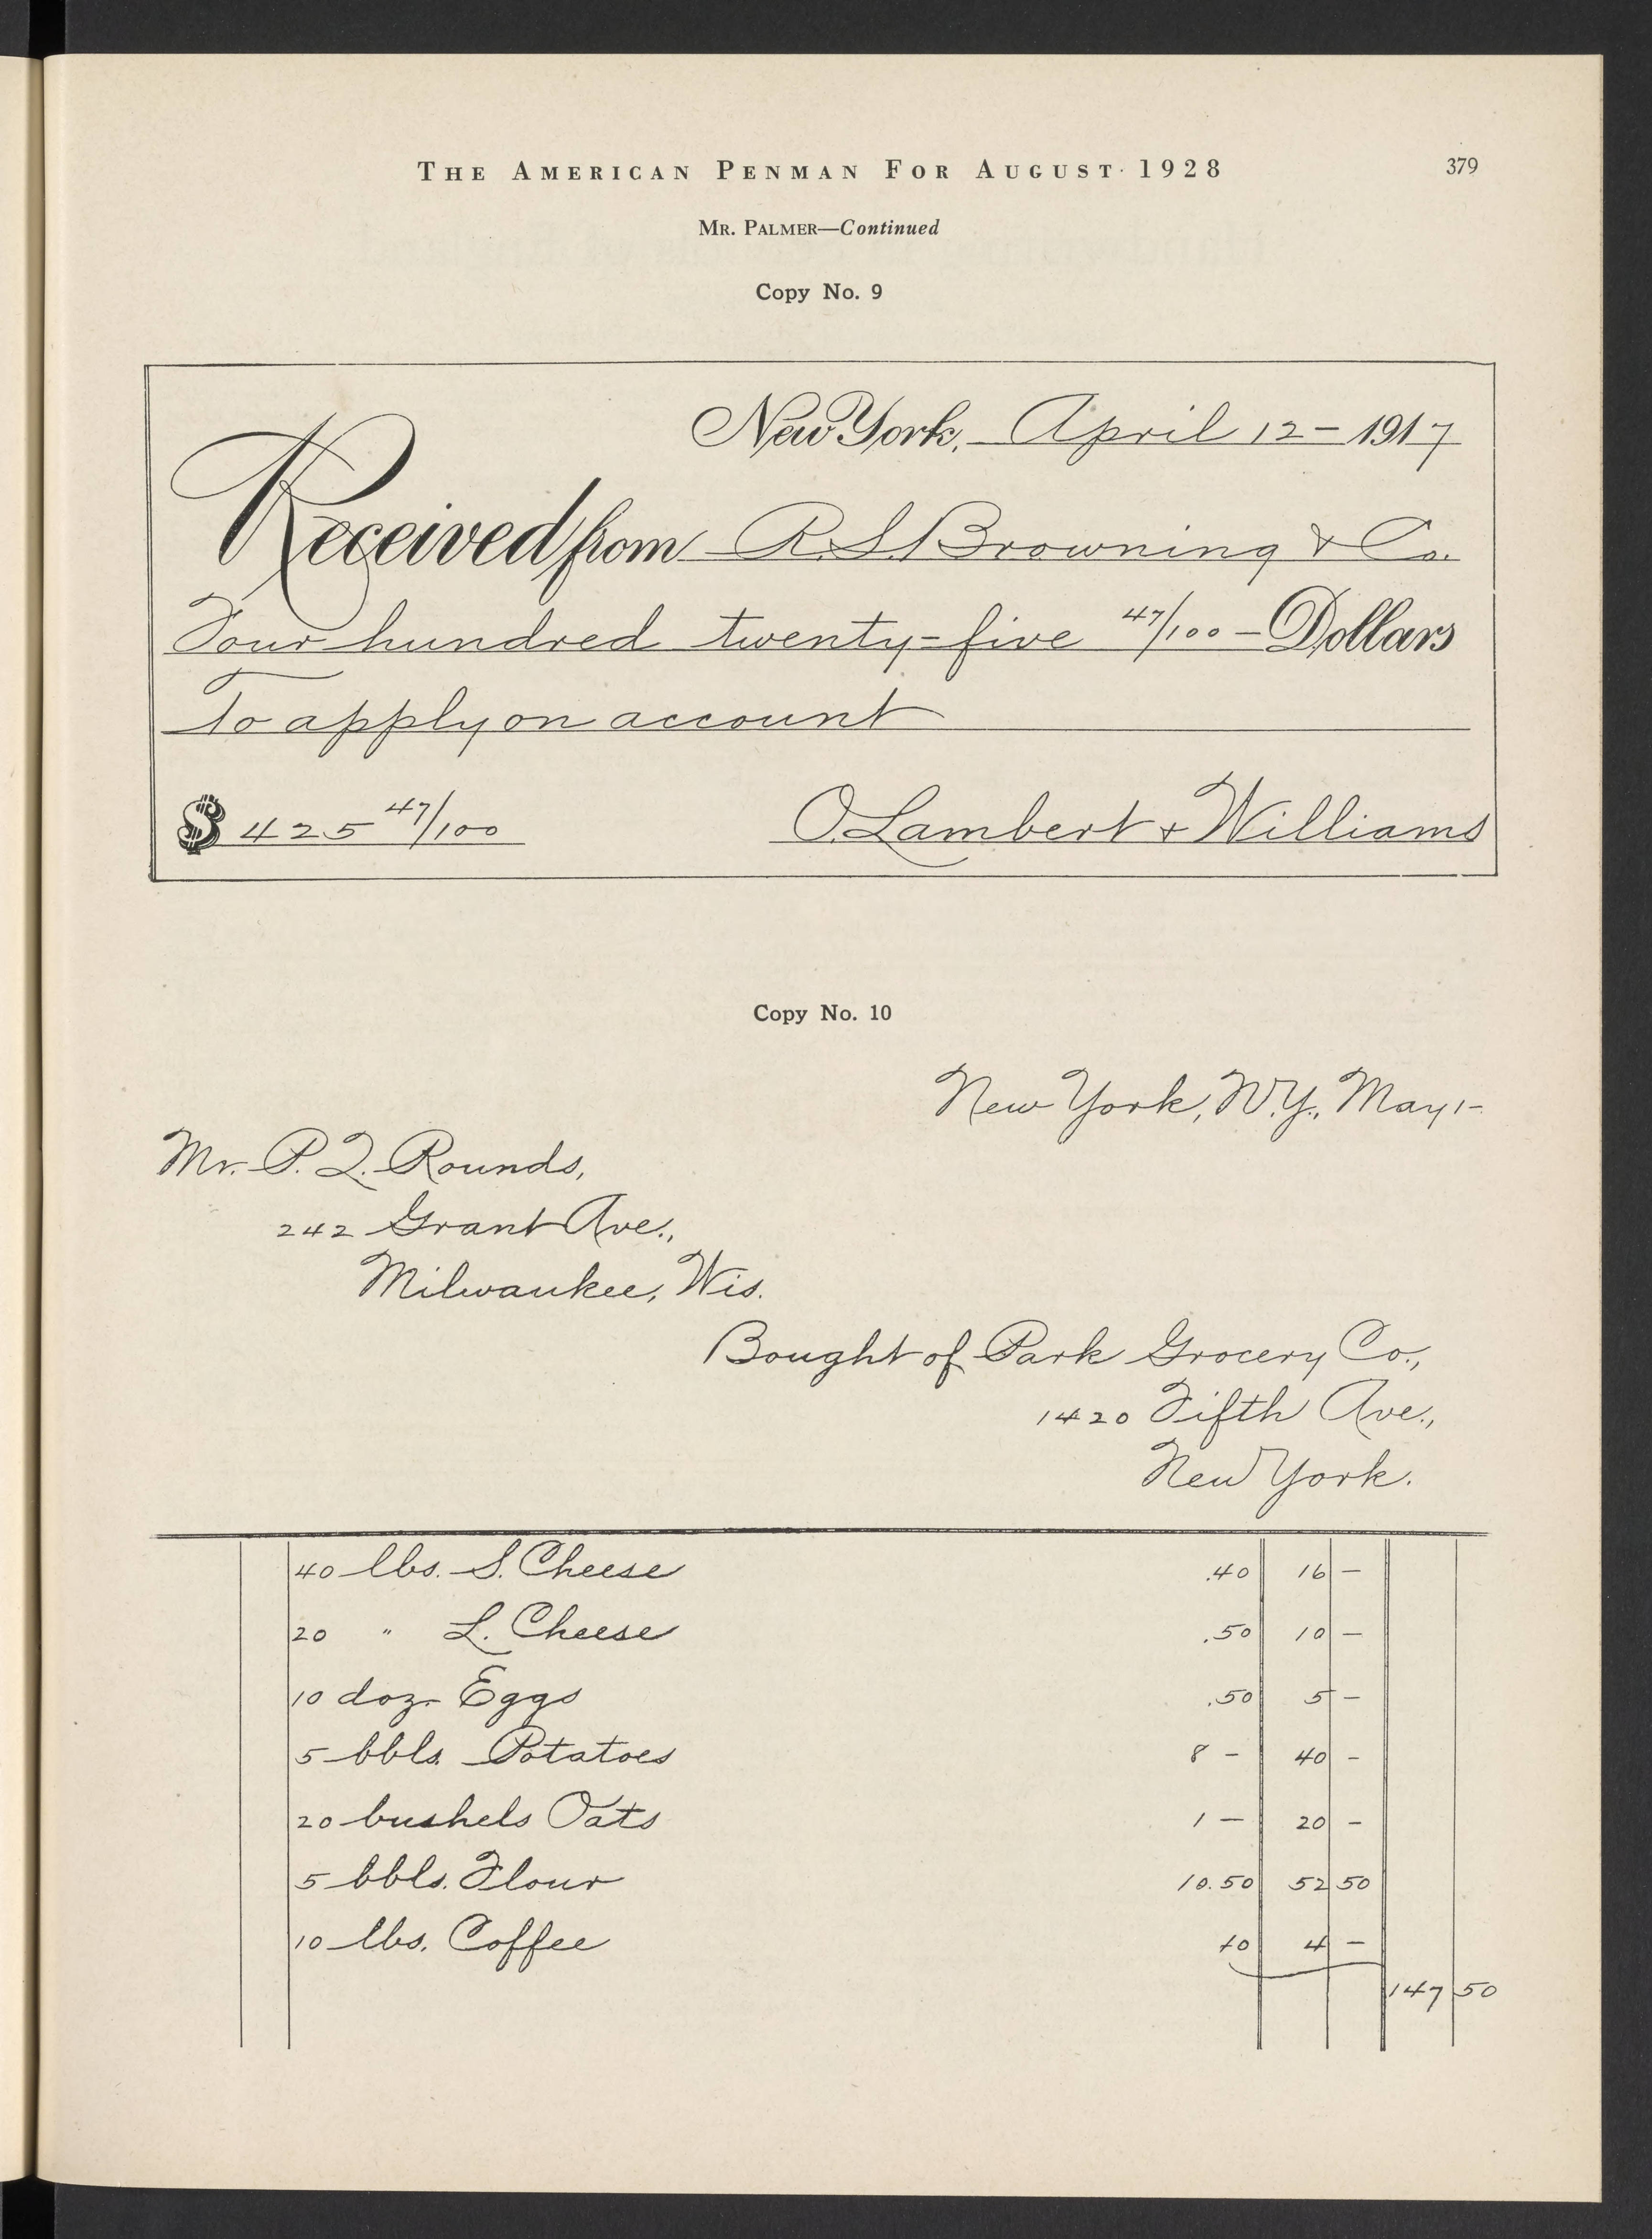 THE AMERICAN PENMAN FOR AUGUST 1928 379
MR. PALMER—Continued
Copy No. 9
New York, April 12 – 1917
Received from R. S. Browning & Co.
Four hundred twenty-five 47/100 – Dollars
To apply on account
$ 425 47/100 O. Lambert & Williams
Copy No. 10
New York, N.Y., May 1-
Mr. P. Q. Rounds,
242 Grant Ave.,
Milwaukee, Wis.
Bought of Park Grocery Co.,
1420 Fifth Ave.,
New York.
40 lbs. S. Cheese .40 16 –
20 " L. Cheese .50 10 –
10 doz. Eggs .50 5 –
5 bbls. Potatoes 8 – 40 –
20 bushels Oats 1 – 20 –
5 bbls. Flour 10.50 52 50
10 lbs. Coffee 40 4 –
147 50